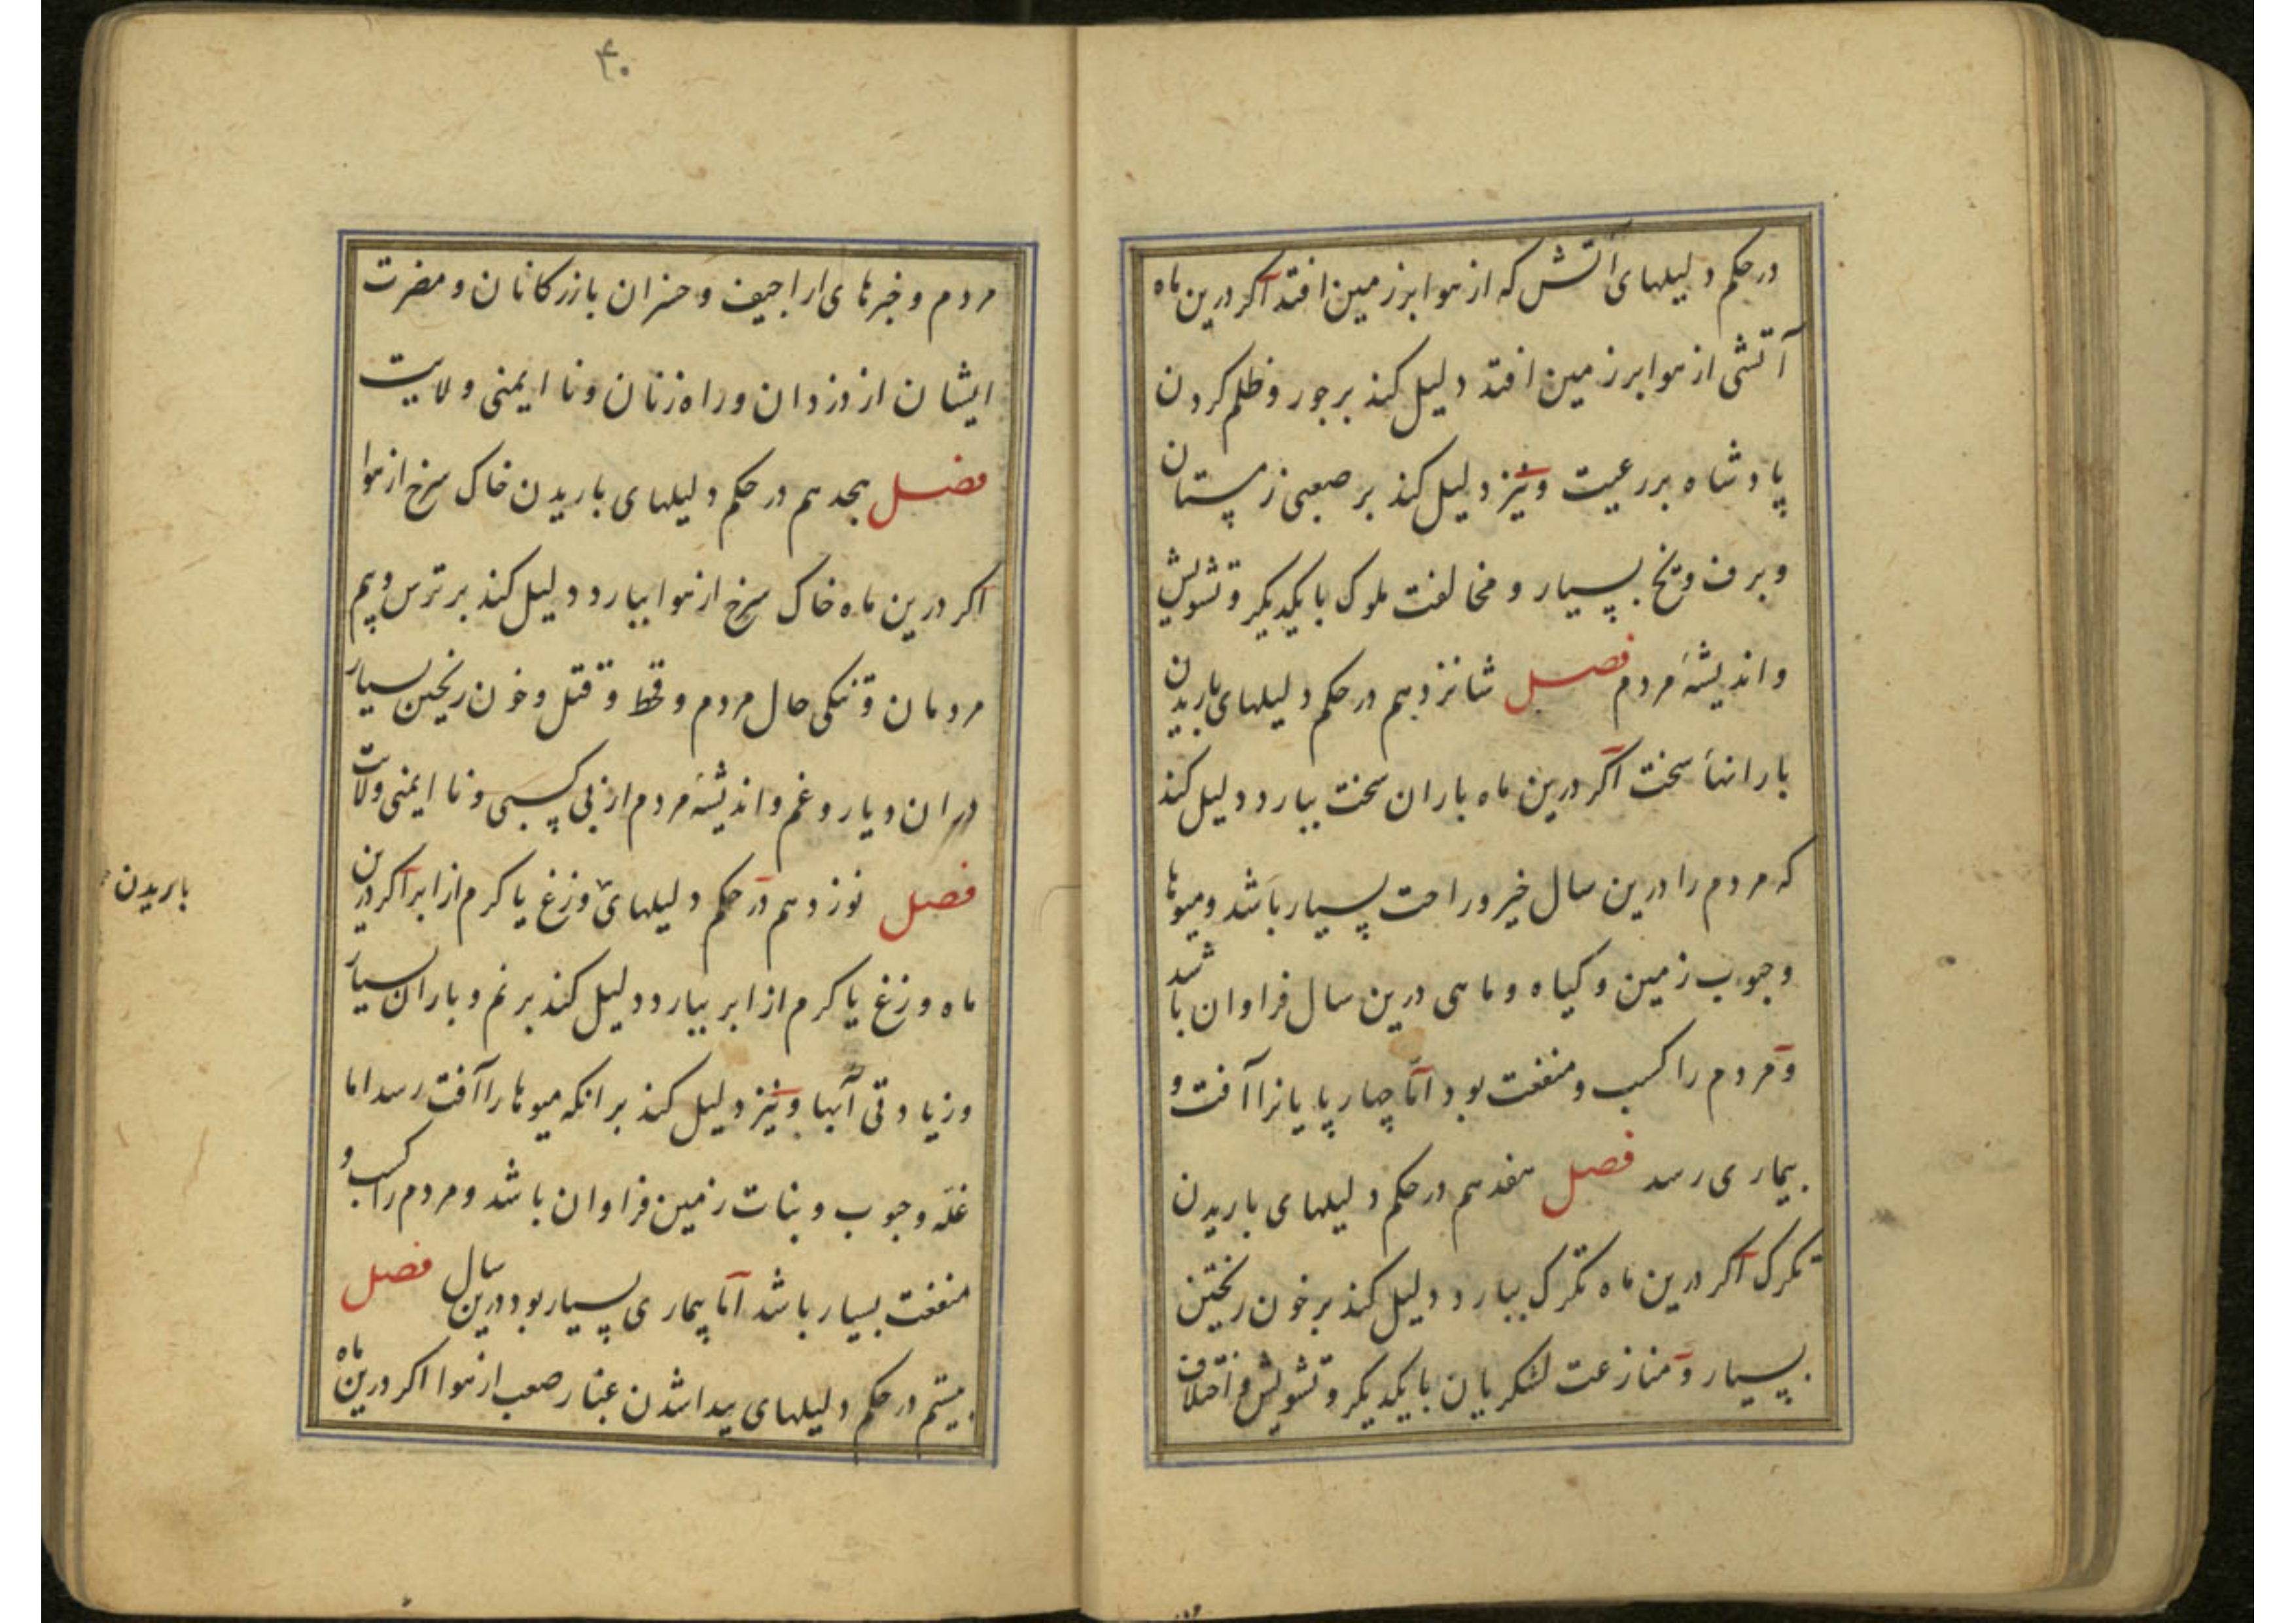 در حکم دلیلهای آتش که از هوا بر زمین افتد اکر درین ماه
آتشی از هوا بر زمین افتد دلیل کند بر جور و ظلم کردن
پادشاه بر رعیت و نیز دلیل کند بر صعبی زمستان
و برف و یخ بسیار و مخالفت ملوک با یکدیکر و تشویش
و اندیشهٔ مردم فصل شانزدهم در حکم دلیلهای باریدن
بارانهاء سخت اکر درین ماه باران سخت ببارد دلیل کند
که مردم را درین سال خیر و راحت بسیار باشد و میوها
و حبوب زمین و کیاه و ماهی درین سال فراوان باشد
و مردم را کسب و منفعت بود اما چهارپایانرا آفت و
بیماری رسد فصل هفدهم در حکم دلیلهای باریدن
تکرک اکر درین ماه تکرک ببارد دلیل کند بر خون ریختن
بسیار و منازعت لشکریان با یکدیکر و تشویش و اختلاف
۴۰
مردم و خبرهای اراجیف و خسران بازرکانان و مضرت
ایشان از دزدان و راه زنان و نا ایمنی ولایت
فصل هجدهم در حکم دلیلهای باریدن خاک سرخ از هوا
اکر درین ماه خاک سرخ از هوا ببارد دلیل کند بر ترس و بیم
مردمان و تنکی حال مردم و قحط و قتل و خون ریختن بسیار
در ان دیار و غم و اندیشهٔ مردم از بی کسبی و نا ایمنی ولایت
فصل نوزدهم در حکم دلیلهای وزغ یا کرم از ابر اکر درین
باریدن
ماه وزغ یا کرم از ابر ببارد دلیل کند بر نم و باران بسیار
و زیادتی آبها و نیز دلیل کند بر انکه میوها را آفت رسد اما
غله و حبوب و نبات زمین فراوان باشد و مردم را کسب و
منفعت بسیار باشد اما بیماری بسیار بود درین سال فصل
بیستم در حکم دلیلهای پیدا شدن غبار صعب از هوا اکر درین ماه